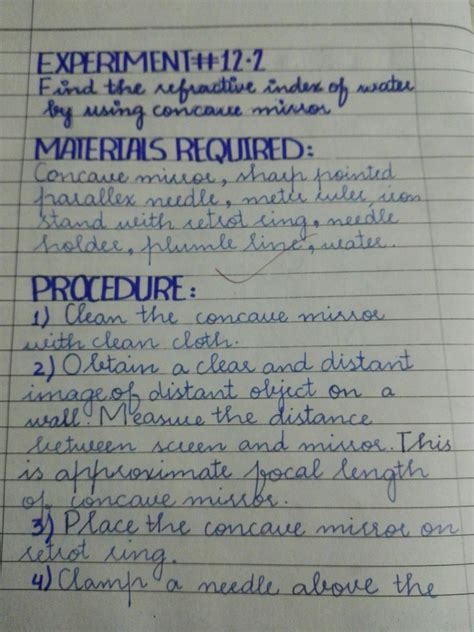 EXPERIMENT#12.2
Find the refractive index of water
by using concave mirror
MATERIALS REQUIRED:
Concave mirror, sharp pointed
parallex needle, meter ruler, iron
stand with retrot ring, needle
holder, plumle line, water.
PROCEDURE:
1) Clean the concave mirror
with clean cloth.
2) Obtain a clear and distant
image of distant object on a
wall. Measure the distance
between screen and mirror. This
is approximate focal length
of concave mirror.
3) Place the concave mirror on
retrot ring.
4) Clamp a needle above the